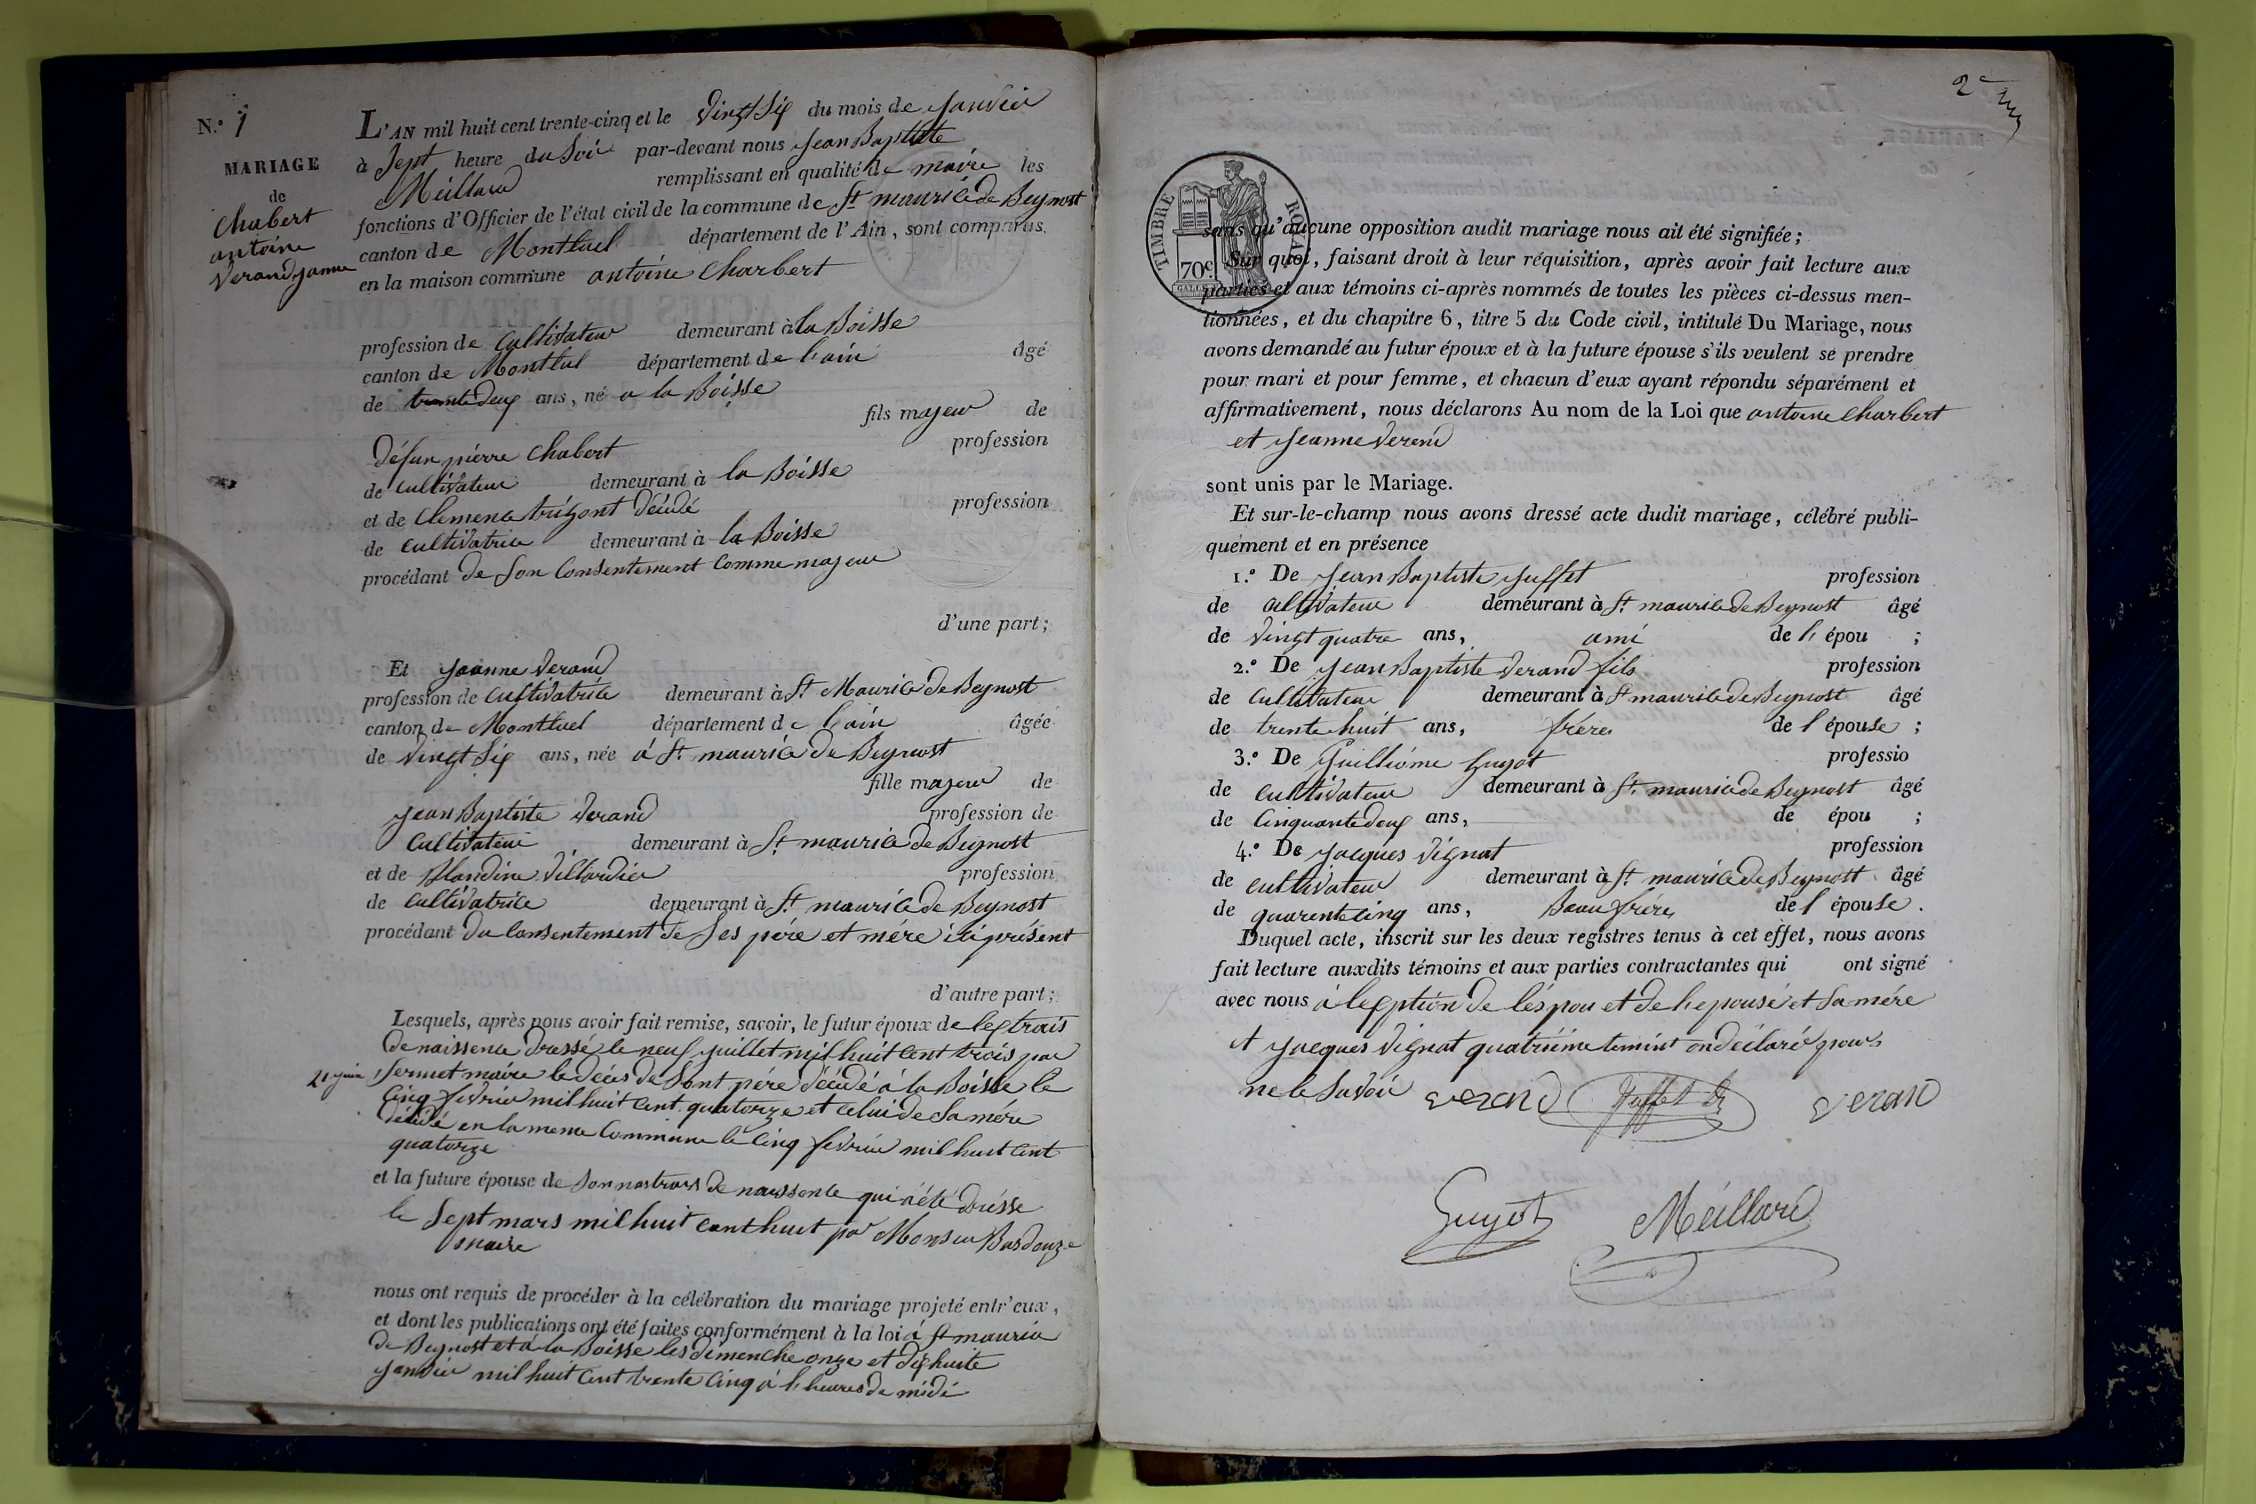 N.° 1
MARIAGE
de
Chabert
antoine
Verand janne
L'AN mil huit cent trente-cinq et le vingt Six du mois de Janvier
à Sept heure du Soir par-devant nous Jean Baptiste
Meillard remplissant en qualité de maire les
fonctions d'Officier de l'état civil de la commune de St maurice de Beynost
canton de Montluel département de l'Ain, sont comparus
en la maison commune antoine Charbert
profession de cultivateur demeurant à la Boisse
canton de Montluel département de l'ain âgé
de trente deux ans, né a la Boisse
fils majeur de
défun pierre Chabert profession
de cultivateur demeurant à la Boisse
et de Clemence décédé profession
de cultivatrice demeurant à la Boisse
procédant de Son Consentement Comme majeur
d'une part;
Et Jeanne Verand
profession de cultivatrice demeurant à St Maurice de Beynost
canton de Montluel département de l'ain âgée
de vingt Six ans, née á St maurice de Beynost
fille majeur de
Jean Baptiste Verand profession de
Cultivateur demeurant à St maurice de Beynost
et de Blandine Villardier profession
de Cultivatrice demeurant à St maurice de Beynost
procédant du Consentement de Ses pére et mére ici présent
d'autre part;
Lesquels, après nous avoir fait remise, savoir, le futur époux de lextrais
de naissence dressé le neuf juillet mil huit Cent trois par
21 juin
maire le déces de Sont pére décédé á la Boisse le
Cinq fevrier mil huit Cent quatorze et celui de Sa mére
décédé en la meme Commune le Cinq fevrier mil huit Cent
quatorze
et la future épouse de Son nextrais de naissence qui a été dressé
le Sept mars mil huit cent huit par Monsieur
maire
nous ont requis de procéder à la célébration du mariage projeté entr'eux,
et dont les publications ont été faites conformément à la loi á St maurice
de Beynost et á la Boisse les dimenche onze et dix huite
Janvier mil huit Cent trente Cinq á l'heures de midi
2e
TIMBRE ROYAL
70c.
sans qu'aucune opposition audit mariage nous ait été signifiée;
Sur quoi, faisant droit à leur réquisition, après avoir fait lecture aux
parties et aux témoins ci-après nommés de toutes les pièces ci-dessus men-
tionnées, et du chapitre 6, titre 5 du Code civil, intitulé Du Mariage, nous
avons demandé au futur époux et à la future épouse s'ils veulent se prendre
pour mari et pour femme, et chacun d'eux ayant répondu séparément et
affirmativement, nous déclarons Au nom de la Loi que antoine Charbert
et Jeanne Verend
sont unis par le Mariage.
Et sur-le-champ nous avons dressé acte dudit mariage, célébré publi-
quement et en présence
1.° De Jean Baptiste Juffet profession
de Cultivateur demeurant à St maurice de Beynost âgé
de Vingt quatre ans, ami de l' épou ;
2.° De Jean Baptiste Verand fils profession
de Cultivateur demeurant à St maurice de Beynost âgé
de trente huit ans, fréres de l' épouse ;
3.° De Guilliome Guyot professio
de cultivateur demeurant à St maurice de Beynost âgé
de Cinquante deux ans, de épou ;
4.° De Jacques Vignat profession
de cultivateur demeurant à St maurice de Beynost âgé
de quarente cinq ans, Beau frére de l' épouse.
Duquel acte, inscrit sur les deux registres tenus à cet effet, nous avons
fait lecture auxdits témoins et aux parties contractantes qui ont signé
avec nous á lexption de lépou et de lepouse et Sa mére
et Jacques Vignat quatriéme temint on déclaré pour
ne le Savoir verand Juffet veran
Guyot Meillard